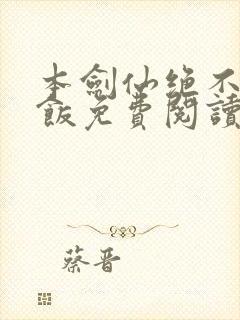 本劍仙絕不
飯免費閱讀
蔡晋